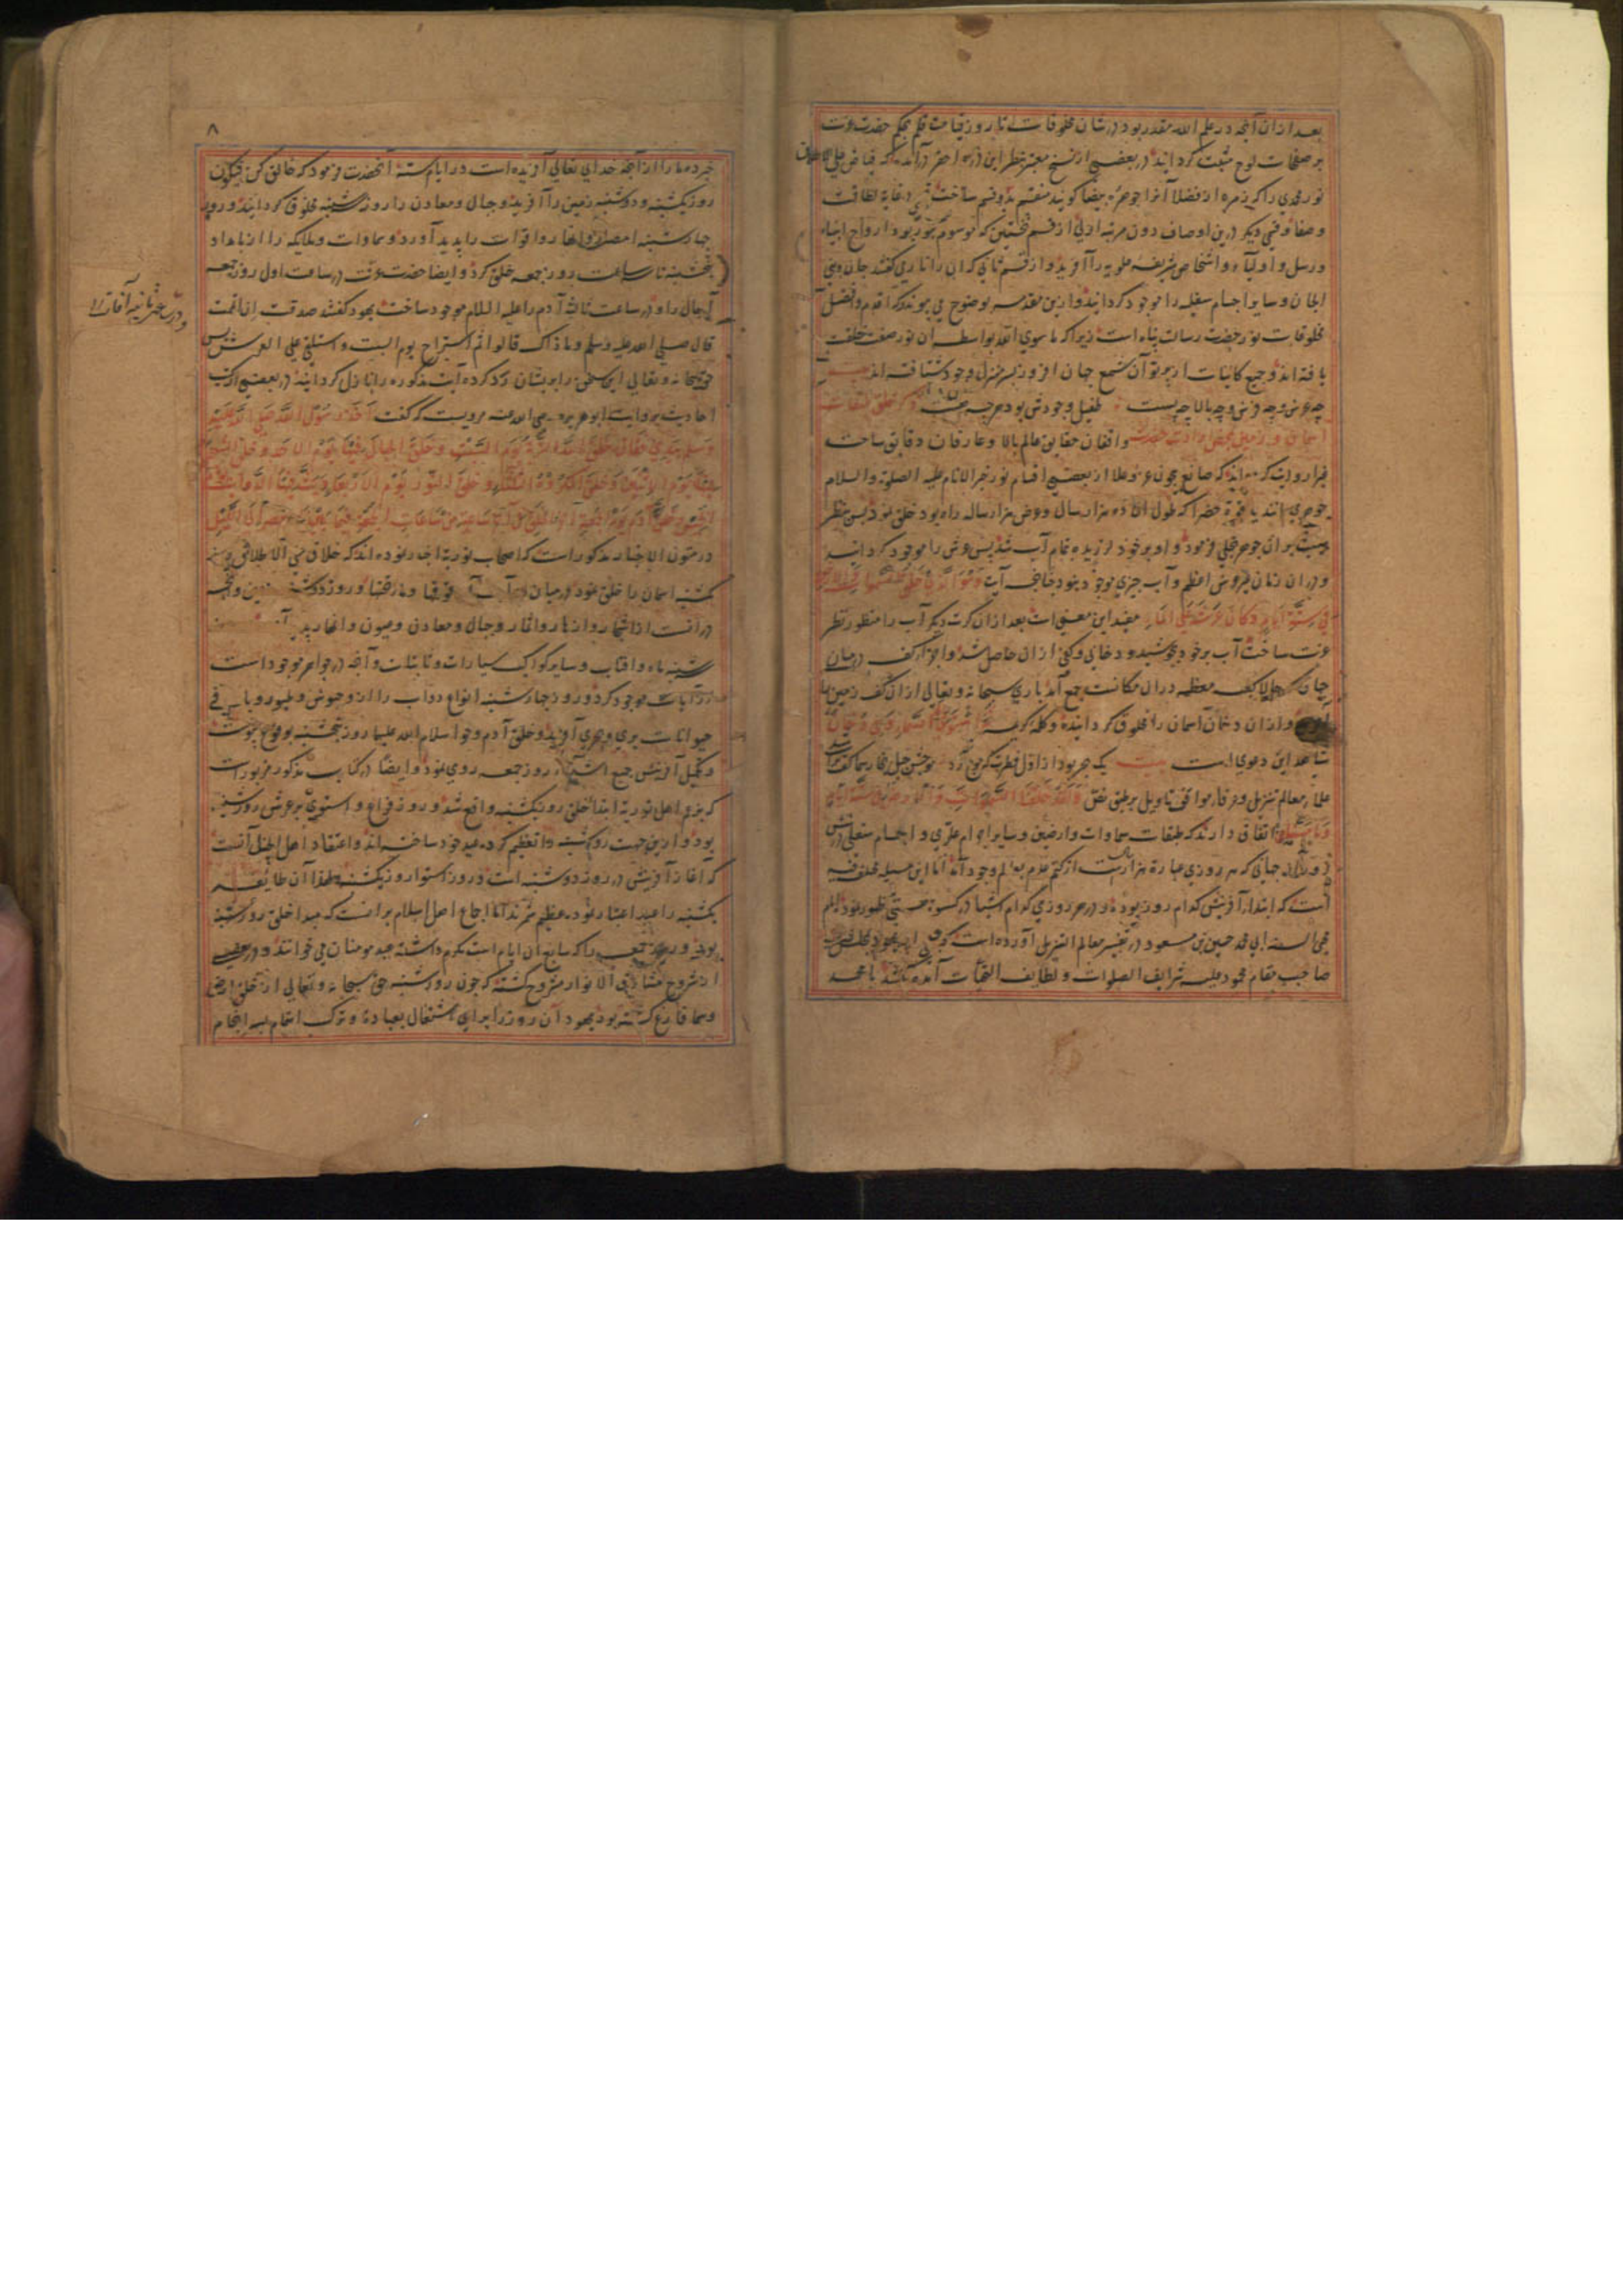 بعد ازان آنچه در علم الله مقدر بود در شان مخلوقات تا روز قیامت قلم بحکم حضرت عزت
بر صفحات لوح مثبت گردانید و در بعضی از نسخ معتبر بنظر این ذره احقر در آمده که فیاض علی الاطلاق
نور محمدی را که زمره از فضلا آنرا جوهره بیضا گویند منقسم بدو قسم ساخت قسمی در غایة لطافت
و صفا و قسمی دیگر درین اوصاف دون مرتبه اولی از قسم نخستین که موسوم بنور بود ارواح انبیاء
و رسل و اولیاء و اشخاص شریفه علویه را آفرید و از قسم ثانی که آن را ناری گفتند جان و بنی
الجان و سایر اجسام سفلیه را موجود گردانید و ازین مقدمه بوضوح می پیوندد که اقدم و افضل
مخلوقات نور حضرت رسالت پناه است زیرا که ما سوی الله بواسطه آن نور صفت خلقت
یافته اند و جمیع کاینات از پرتو آن شمع جهان افروز بسر منزل وجود شتافته اند
چه عرش و چه فرش و چه بالا چه پست طفیل وجودش بود هر چه هست
واقفان حقایق عالم بالا و عارفان دقایق ساحت
غبرا روایت کرده اند که صانع بیچون عز و علا از بعضی اقسام نور خیر الانام علیه الصلوة والسلام
جوهری مانند یاقوة خضرا که طول آن ده هزار سال و عرض هزار ساله راه بود خلق نمود پس بنظر
هیبت بر آن جوهر تجلی فرمود و او بر خود لرزیده تمام آب شد پس عرش را موجود گردانید
و در آن زمان غیر عرش اعظم و آب چیزی موجود نبود چنانچه آیت وهو الذی خلق السموات والارض
فی ستة ایام وکان عرشه علی الماء مفید این معنی است بعد ازان کرت دیگر آب را منظور نظر
عزت ساخت آب بر خود بجوشید و دخانی و کفی ازان حاصل شد و اجزاء کف در میان
جهان که حالا کعبه معظمه دران مکانست جمع آمد باری سبحانه و تعالی ازان کف زمین را
وازان دخان آسمان را مخلوق گردانید و کلمه کریمه ثم استوی الی السماء وهی دخان
شاهد این دعوی است بیت یک جوهر بود از اول فطرت که موج زد
علماء معالم تنزیل و عرفاء مواقف تاویل بر طبق نص ولقد خلقنا السموات والارض فی ستة ایام
اتفاق دارند که طبقات سماوات و ارضین و سایر اجرام علوی و اجسام سفلی در شش
روز ازان جهانی که هر روزی عبارة هزار سالست از کتم عدم بعالم وجود آمد اما این مسئله مختلف فیه
است که ابتداء آفرینش کدام روز بوده و در هر روزی کدام اشیا در کسوة هستی ظهور نموده امام
محی السنه ابی محمد حسین بن مسعود در تفسیر معالم التنزیل آورده است که
صاحب مقام محمود علیه شرایف الصلوات و لطایف التحیات آمده گفتند یا محمد
۸
خبر ده ما را از آنچه خدای تعالی آفریده است در ایام سته آنحضرت فرمود که خالق کن فیکون
روز یکشنبه و دوشنبه زمین را آفرید و جبال و معادن را روز سه شنبه مخلوق گردانید و روز
چهار شنبه امصار و انهار و اقوات را پدید آورد و سماوات و ملایکه را از بامداد
پنجشنبه تا سه ساعت روز جمعه خلق کرد و ایضا حضرت عزت در ساعت اول روز جمعه
آجال را و در ساعت ثالثه آدم را علیه السلام موجود ساخت یهود گفتند صدقت ان اتممت
و در ساعت ثانیه آفات را
قال صلی الله علیه وسلم وما ذاک قالوا ثم استراح یوم السبت و استلقی علی العرش پس
حق سبحانه و تعالی این سخن را بر ایشان رد کرده آیت مذکوره را نازل گردانید و در بعضی از کتب
احادیث بروایت ابو هریره رضی الله عنه مرویست که گفت اخذ رسول الله صلی الله علیه
وسلم بیدی فقال خلق الله التربة یوم السبت وخلق الجبال فیها یوم الاحد وخلق الشجر
فیها یوم الاثنین وخلق المکروه الثلثاء وخلق النور یوم الاربعاء وبث فیها الدواب یوم
الخمیس وخلق آدم یوم الجمعة
در متون الاخبار مذکور است که اصحاب توریة اخبار نموده اند که خلاق سمی الاطلاق روز
یکشنبه آسمان را خلق نمود و در میان آب و روز دوشنبه زمین و آنچه
درانست از اشجار و ازهار و اثمار و جبال و معادن و عیون و انهار
شنبه ماه و آفتاب و سایر کواکب سیارات و ثابتات و آنچه در جواهر موجود است
موجود کرد و روز چهار شنبه انواع دواب را از وحوش و طیور و باقی
حیوانات بری و بحری آفرید و خلق آدم و حوا سلام الله علیهما روز پنجشنبه بوقوع پیوست
و تکمیل آفرینش جمیع اشیاء روز جمعه روی نمود و ایضا در کتاب مذکور مزبور است
که بزعم اهل توریة ابتداء خلق روز یکشنبه واقع شد و روز فراغ و استوی بر عرش روز شنبه
بود و ازین جهت روز شنبه را تعظیم کرده عید خود ساخته اند و اعتقاد اهل انجیل آنست
که آغاز آفرینش در روز دوشنبه است و روز استوا روز یکشنبه و لهذا آن طایفه
یکشنبه را عید اعتبار نموده عظیم شمرند اما اجماع اهل اسلام بر آنست که مبداء خلق روز شنبه
بوده و روز جمعه را که سابع آن ایام است مکرم داشته عید مومنان می خوانند و در بعضی
از شروح مشارق الانوار مشروح گشته که چون روز شنبه حق سبحانه و تعالی از خلق ارض
و سما فارغ گشته بود یهود آن روز را برای اشتغال بعبادة و ترک